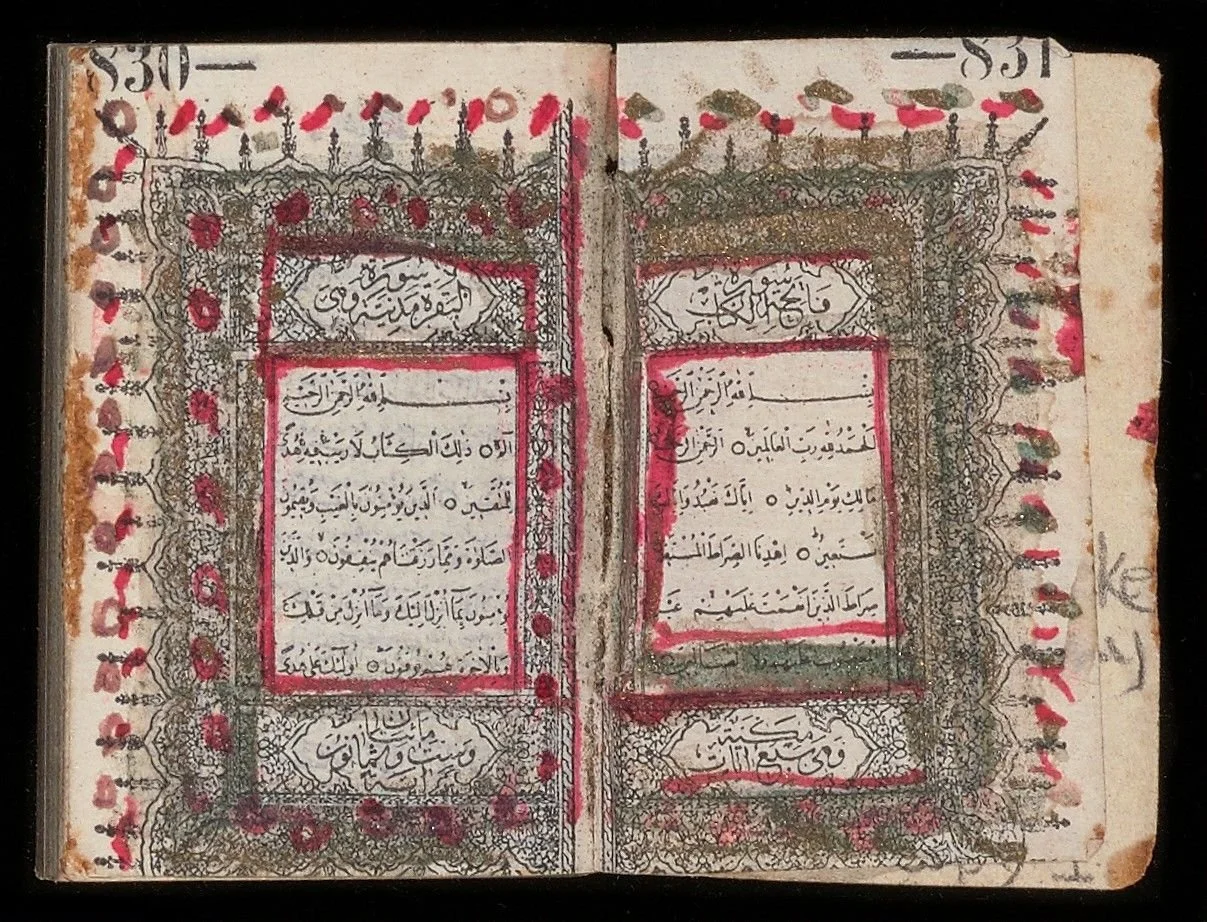 831—
سورة
فاتحة الكتاب
بسم الله الرحمن الرحيم
الحمد لله رب العالمين ○ الرحمن الرحيم
مالك يوم الدين ○ اياك نعبد واياك
نستعين ○ اهدنا الصراط المستقيم
صراط الذين انعمت عليهم غير
المغضوب عليهم ولا الضالين
مكية
وهى سبع ايات
ke
830—
سورة
البقرة مدنية وهى
بسم الله الرحمن الرحيم
الم ○ ذلك الكتاب لا ريب فيه هدى
للمتقين ○ الذين يؤمنون بالغيب ويقيمون
الصلوة ومما رزقناهم ينفقون ○ والذين
يؤمنون بما انزل اليك وما انزل من قبلك
وبالاخرة هم يوقنون ○ اولئك على هدى
مائتان
وست وثمانون